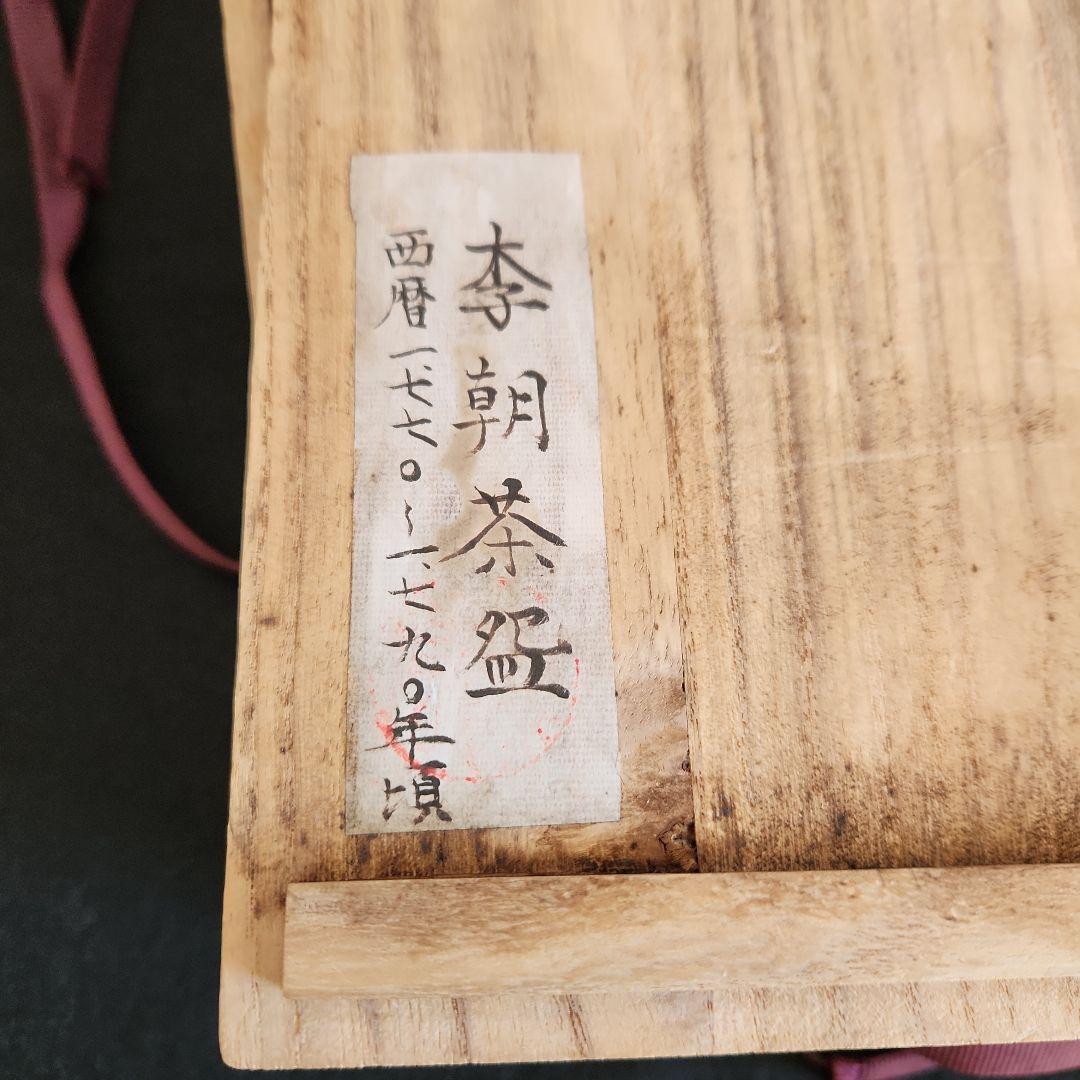 李朝茶盌
西暦一、七七〇〜一、七九〇年頃